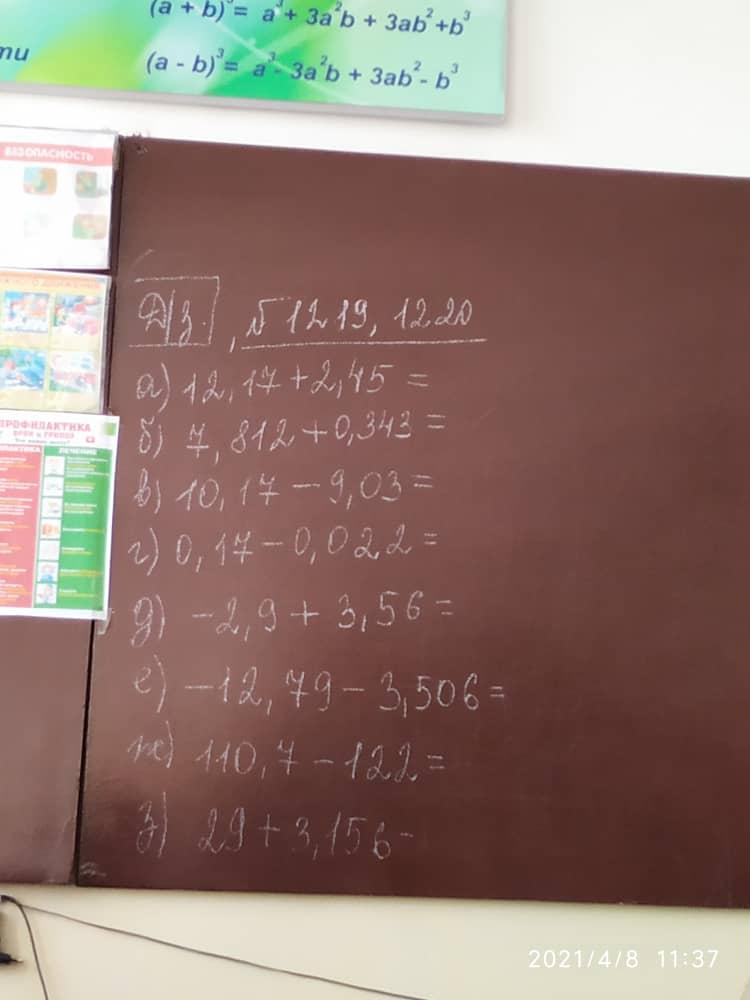 (a + b)³ = a³ + 3a²b + 3ab² + b³
(a - b)³ = a³ - 3a²b + 3ab² - b³
БЕЗОПАСНОСТЬ
ПРОФИЛАКТИКА
ЛЕЧЕНИЕ
Д/з. , № 1219, 1220
а) 12,17 + 2,45 =
б) 7,812 + 0,343 =
в) 10,17 - 9,03 =
г) 0,17 - 0,022 =
д) -2,9 + 3,56 =
е) -12,79 - 3,506 =
ж) 110,7 - 122 =
з) 29 + 3,156 -
2021/4/8 11:37